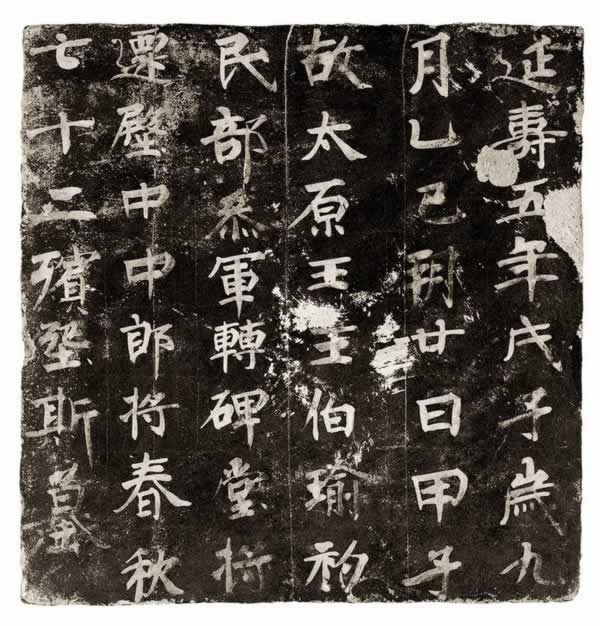 延壽五年戊子歲九
月乙巳朔廿日甲子
故太原王王伯瑜初
民部叅軍轉碑堂将
遷歷中中郎将春秋
七十二殯塟斯墓